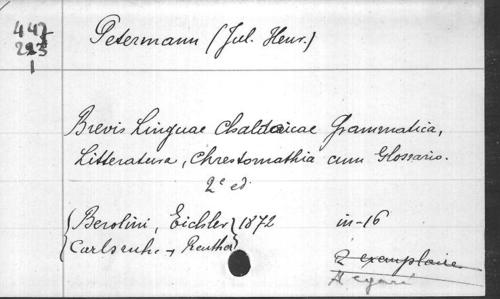 447
223
1
Petermann (Jul. Henr.)
Brevis Linguae Chaldaicae Grammatica,
Litteratura, Chrestomathia cum Glossario.
2e ed.
{Berolini, Eichler} 1872 in-16
{Carlsruhe, Reuther}
2 exemplaire